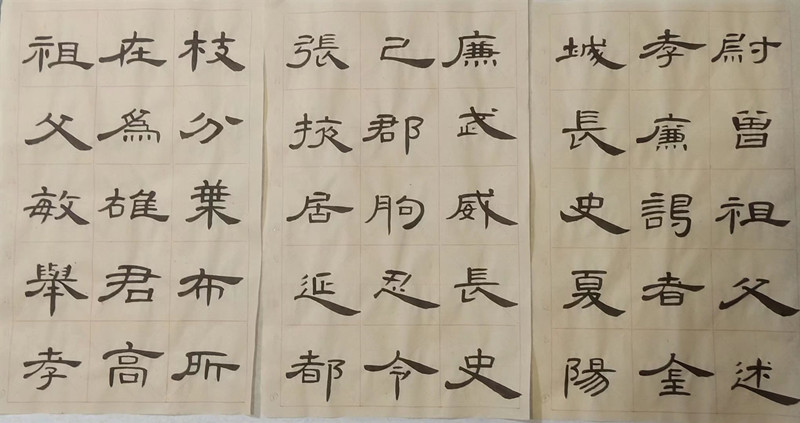 枝分葉布所
在為雄君高
祖父敏舉孝
廉武威長史
己郡朐忍令
張掖居延都
尉曾祖父述
孝廉謁者金
城長史夏陽